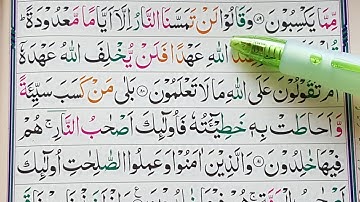 مِّمَّا يَكْسِبُوْنَ ﴿۷۹﴾ وَقَالُوْا لَنْ تَمَسَّنَا النَّارُ اِلَّاۤ اَيَّامًا مَّعْدُوْدَةً ؕ
اللّٰهِ عَهْدًا فَلَنْ يُّخْلِفَ اللّٰهُ عَهْدَهٗۤ
اَمْ تَقُوْلُوْنَ عَلَى اللّٰهِ مَا لَا تَعْلَمُوْنَ ﴿۸۰﴾ بَلٰى مَنْ كَسَبَ سَيِّئَةً
وَّاَحَاطَتْ بِهٖ خَطِيْٓئَتُهٗ فَاُولٰٓئِكَ اَصْحٰبُ النَّارِ ۚ هُمْ
فِيْهَا خٰلِدُوْنَ ﴿۸۱﴾ وَالَّذِيْنَ اٰمَنُوْا وَعَمِلُوا الصّٰلِحٰتِ اُولٰٓئِكَ